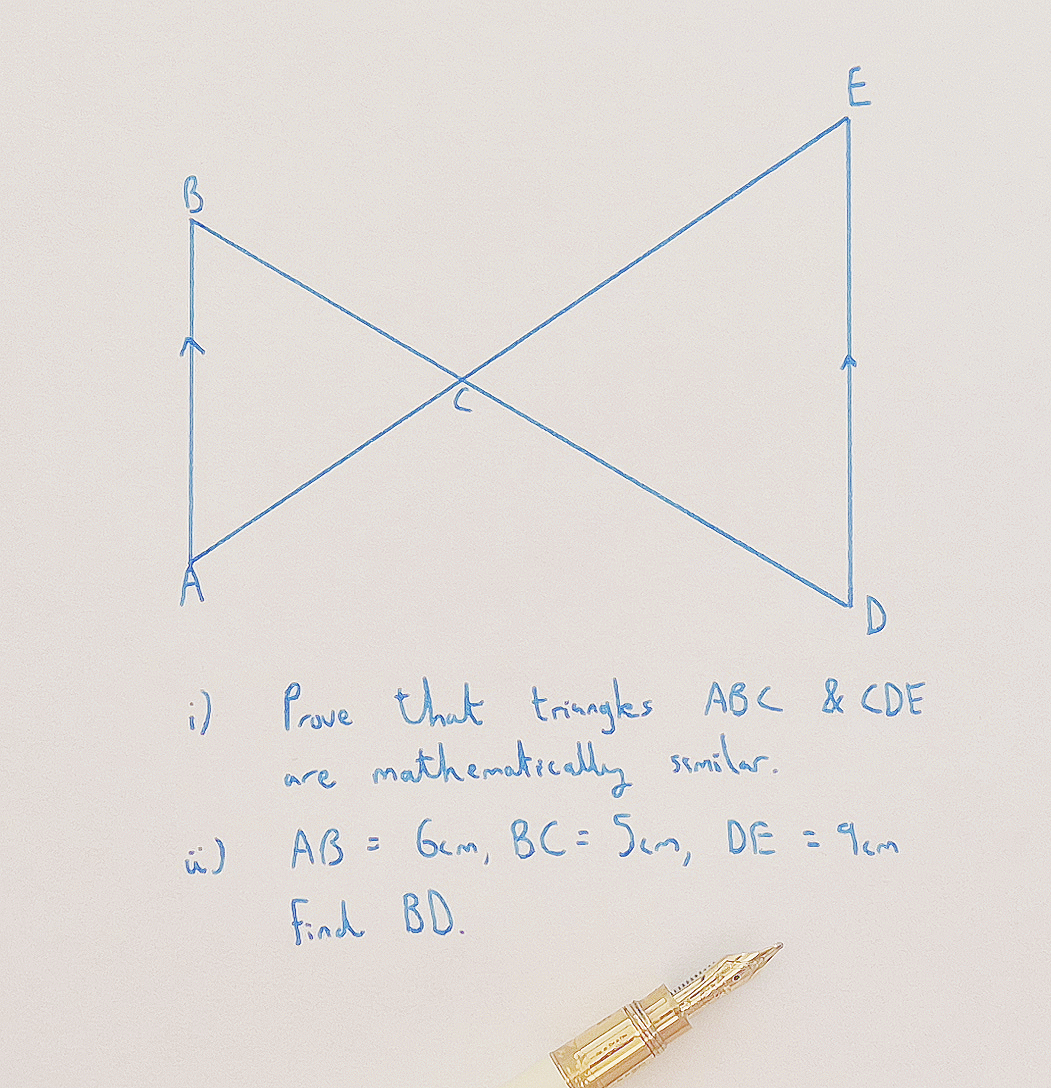 E
B
C
A
D
i) Prove that triangles ABC & CDE
are mathematically similar.
ii) AB = 6cm, BC = 5cm, DE = 9cm
Find BD.